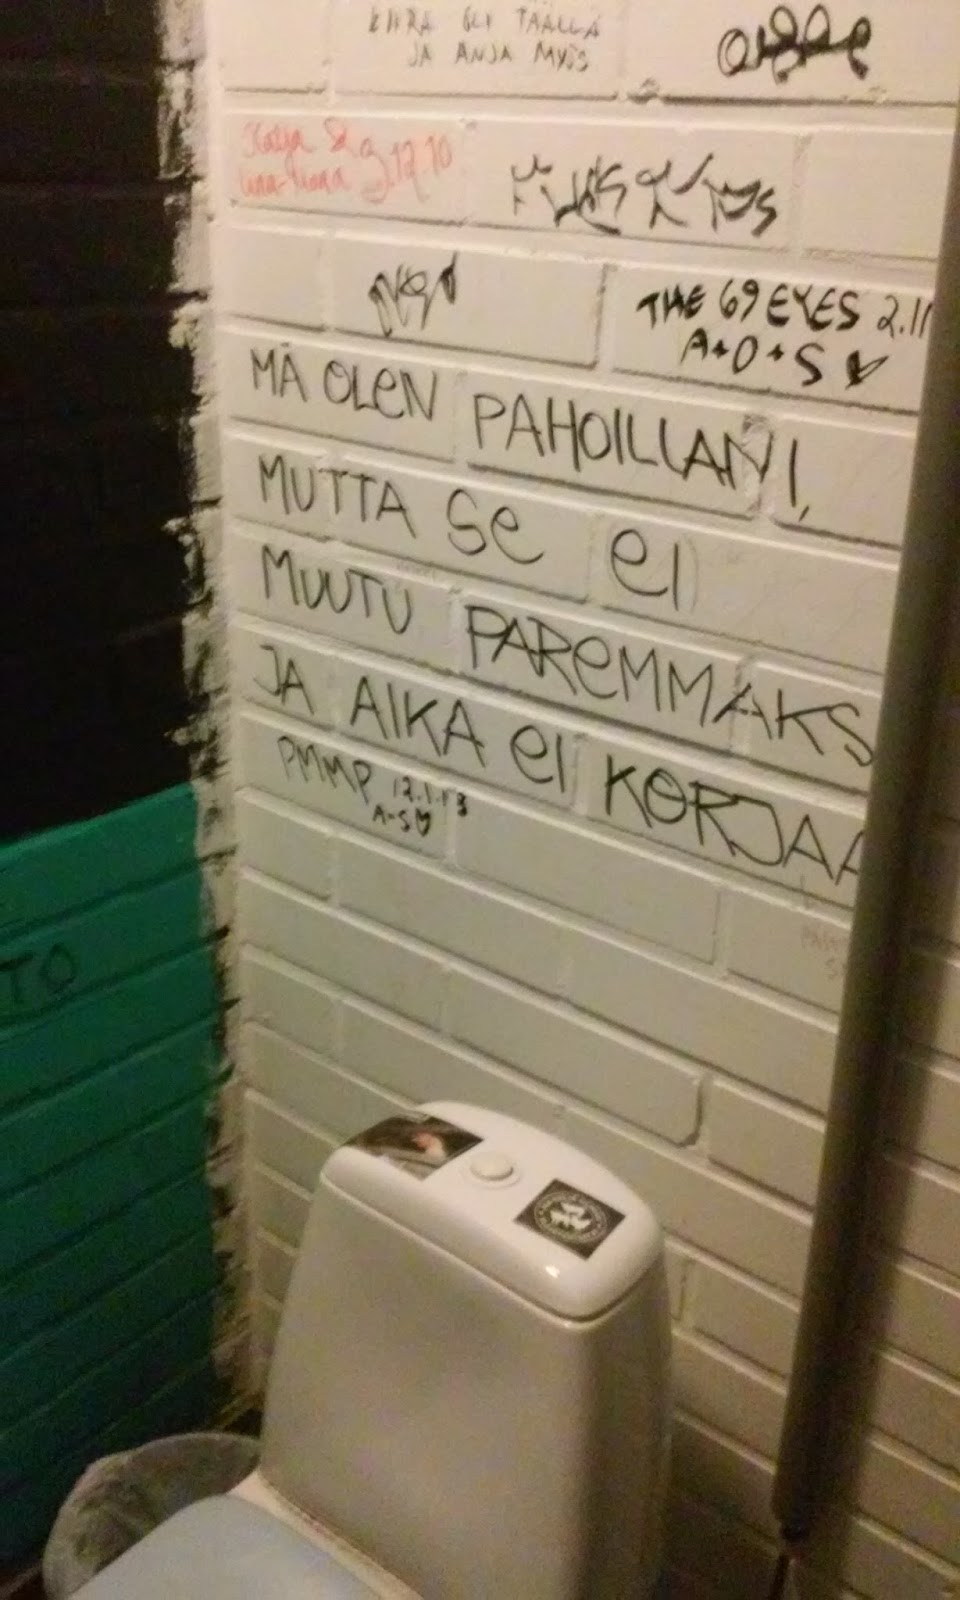 KIIRA OLI TÄÄLLÄ
JA ANJA MYÖS
Katja
9.12.10
THE 69 EYES 2.11
A+O+S
MÄ OLEN PAHOILLANI,
MUTTA SE EI
MUUTU PAREMMAKS
JA AIKA EI KORJAA
PMMP 12.1.13
A-S
TO